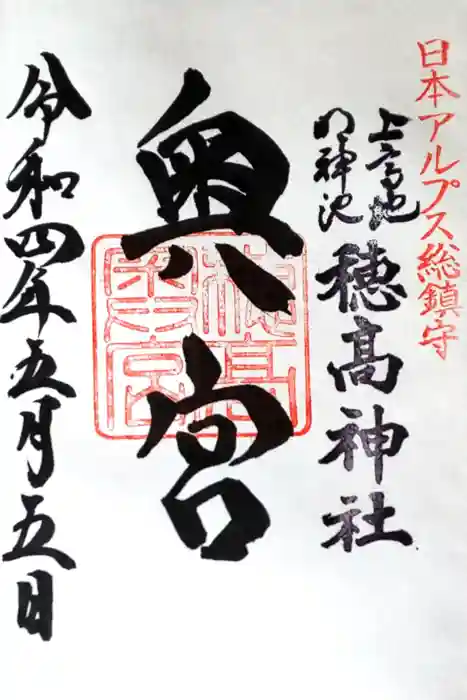 日本アルプス総鎮守
上高地
明神池
穂髙神社
奥宮
令和四年五月五日